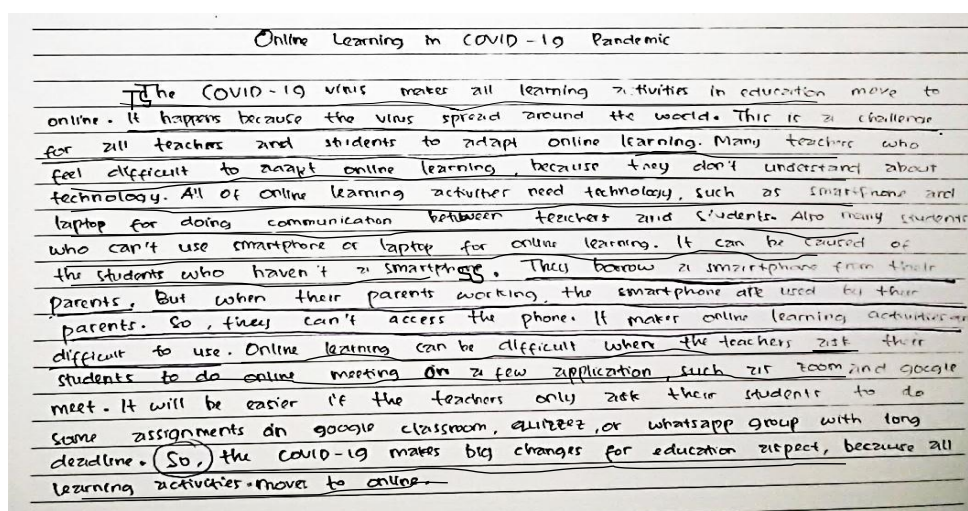 Online Learning in COVID-19 Pandemic
TS The COVID-19 virus makes all learning activities in education move to
online. It happens because the virus spread around the world. This is a challenge
for all teachers and students to adapt online learning. Many teachers who
feel difficult to adapt online learning, because they don't understand about
technology. All of online learning activities need technology, such as smartphone and
laptop for doing communication between teachers and students. Also many students
who can't use smartphone or laptop for online learning. It can be caused of
the students who haven't a smartphone. They borrow a smartphone from their
parents. But when their parents working, the smartphone are used by their
parents. So, they can't access the phone. It makes online learning activities are
difficult to use. Online learning can be difficult where the teachers ask their
students to do online meeting on a few application, such as zoom and google
meet. It will be easier if the teachers only ask their students to do
some assignments on google classroom, quizzez, or whatsapp group with long
deadline. So, the COVID-19 makes big changes for education aspect, because all
learning activities move to online.